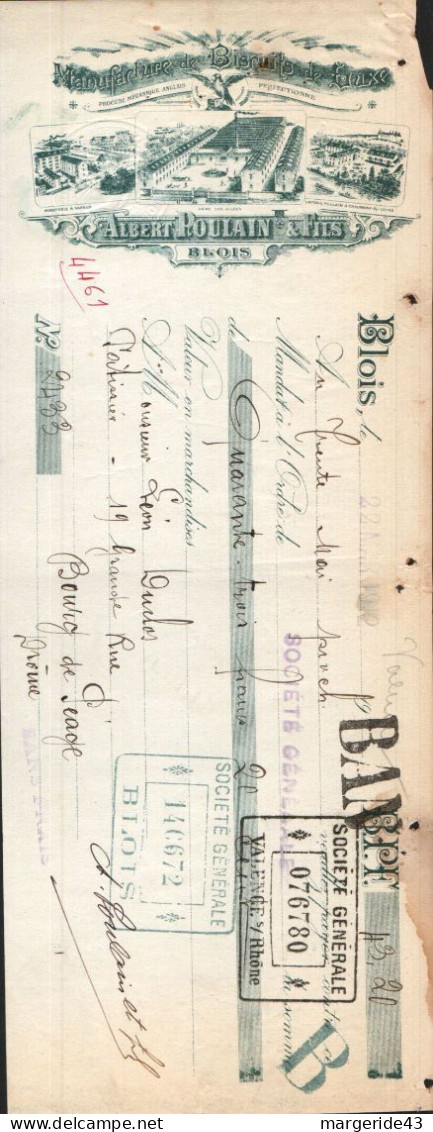 Manufacture de Biscuits de Luxe
PROCÉDÉ MÉCANIQUE ANGLAIS PERFECTIONNÉ
ALBERT POULAIN & FILS
BLOIS
4461
Blois, le
19
B.P.F. 43,20
BAN
Au trente Mai proch.
Mandat à l'Ordre de
SOCIÉTÉ GÉNÉRALE
la somme
de Quarante-trois francs 20
Valeur en marchandises
A Monsieur Léon Duclos
Pâtissier - 19 Grande Rue
Bourg de Péage
Drôme
No. 2433
SANS FRAIS
A. Poulain et fils
SOCIÉTÉ GÉNÉRALE
146672
BLOIS
SOCIÉTÉ GÉNÉRALE
076780
VALENCE s/ Rhône
B
margeride43